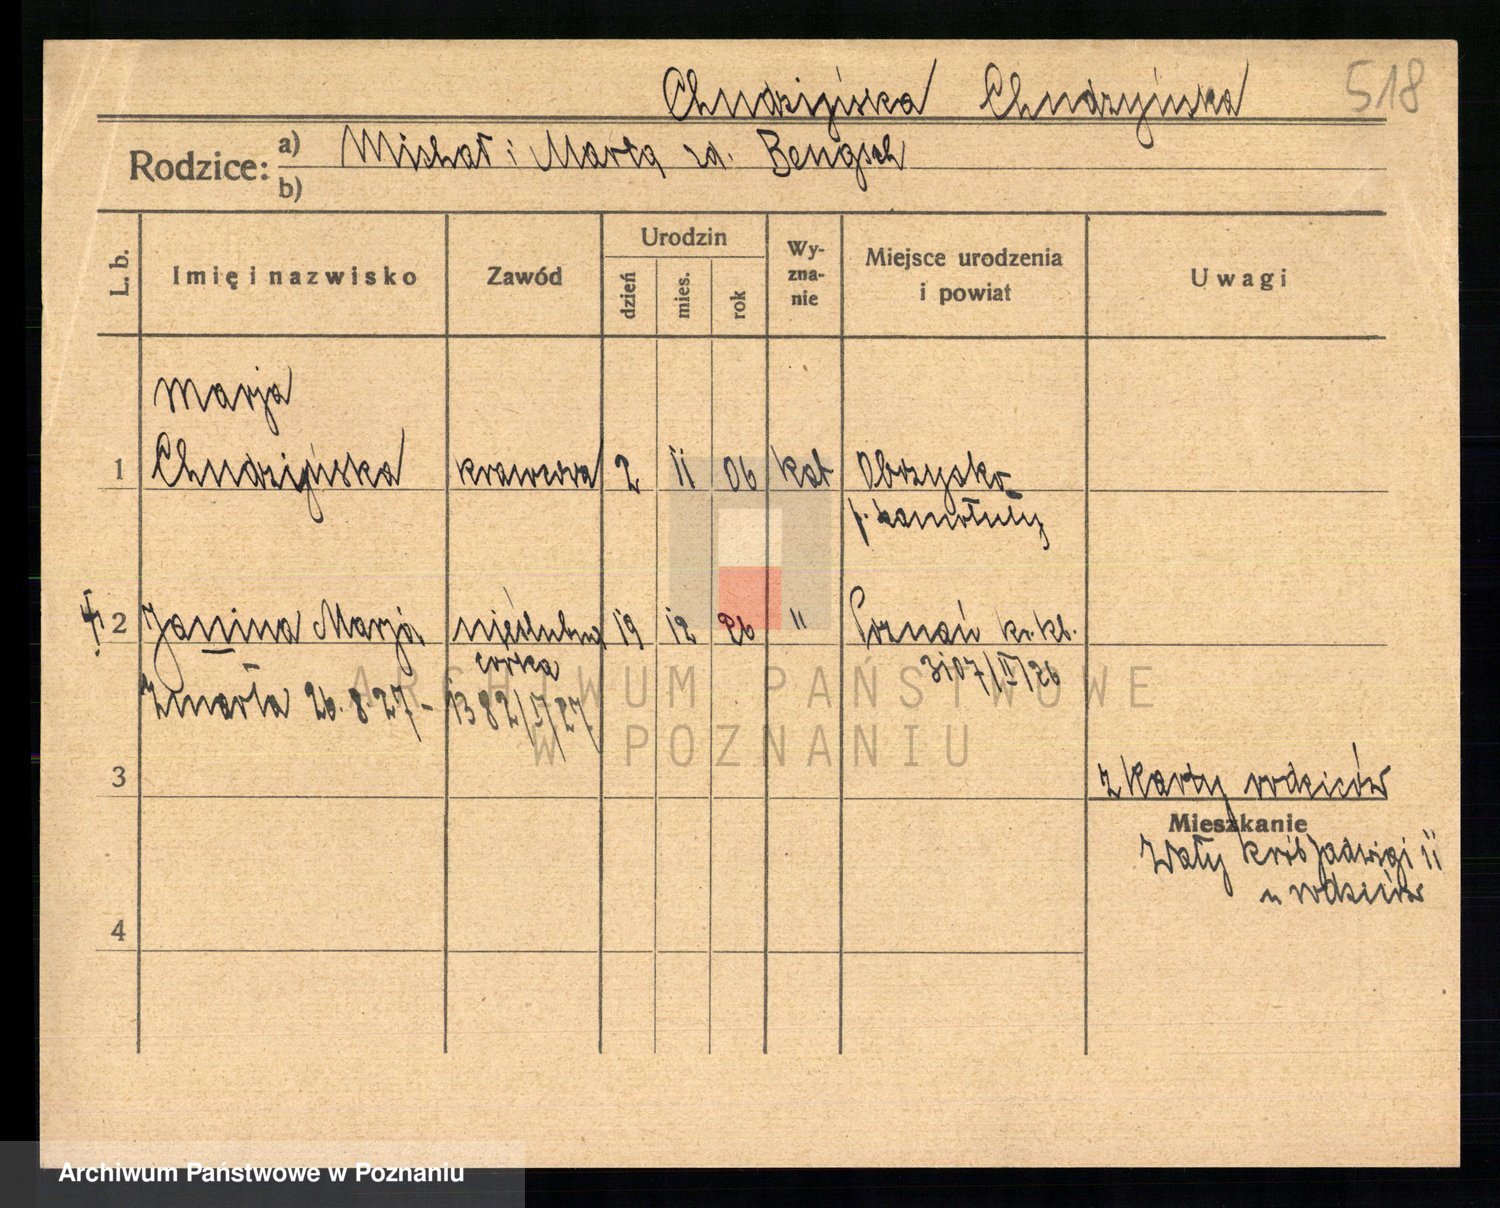 Chudzińska Chudzyńska 518
Rodzice: a) Michał i Marta zd. Bengsch
b)
L. b. Imię i nazwisko Zawód Urodzin dzień mies. rok Wy-zna-nie Miejsce urodzenia i powiat Uwagi
Marja
1 Chudzińska krawcowa 2 11 06 kat Obrzycko
p. Szamotuły
2 Janina Marja nieślubna 19 12 26 " Poznań
córka 3107/II/26
Zmarła 26.8.27 - 1382/I/27
ARCHIWUM PAŃSTWOWE
W POZNANIU
3 z karty rodziców
Mieszkanie
Wały król Jadwigi 11
u rodziców
4
Archiwum Państwowe w Poznaniu